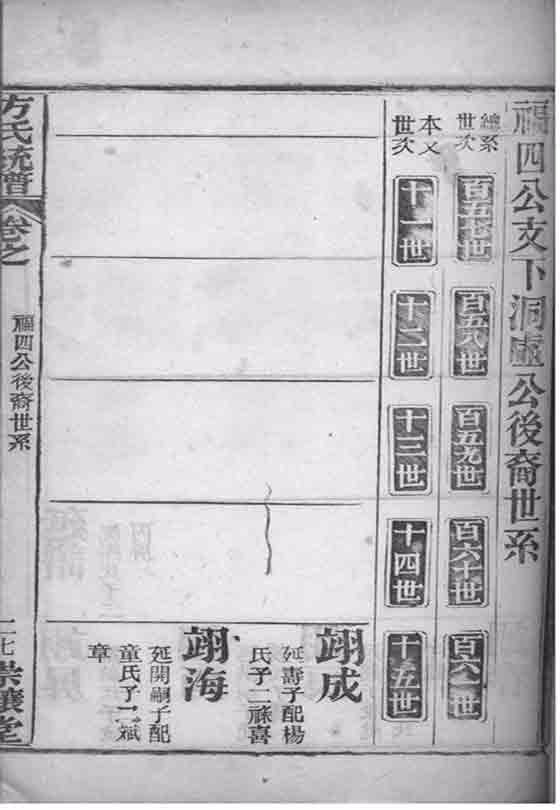 福四公支下洞虛公後裔世系
總系世次
百五七世
百五八世
百五九世
百六十世
百六一世
本支世次
十一世
十二世
十三世
十四世
十五世
翊成
延壽子配楊
氏子二祿喜
翊海
延開嗣子配
童氏子二斌
章
方氏統譜
卷之
福四公後裔世系
堂